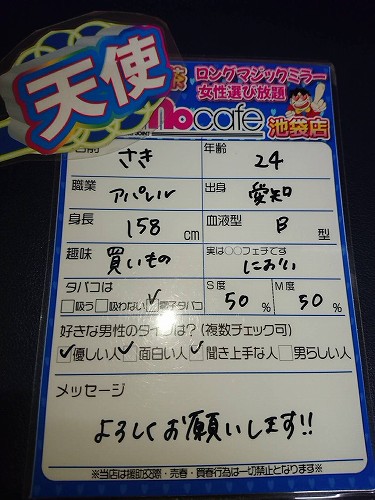 天使
ロングマジックミラー
女性選び放題
Mocafe 池袋店
名前 さき 年齢 24
職業 アパレル 出身 愛知
身長 158 cm 血液型 B 型
趣味 買いもの 実は○○フェチです におい
タバコは S度 M度
□吸う □吸わない ☑電子タバコ 50 % 50 %
好きな男性のタイプは?(複数チェック可)
☑優しい人 ☑面白い人 ☑聞き上手な人 □男らしい人
メッセージ
よろしくお願いします!!
※当店は援助交際・売春・買春行為は一切禁止となります※